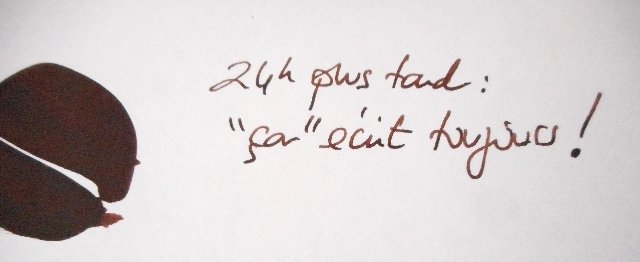 24h plus tard :
"ça" écrit toujours !